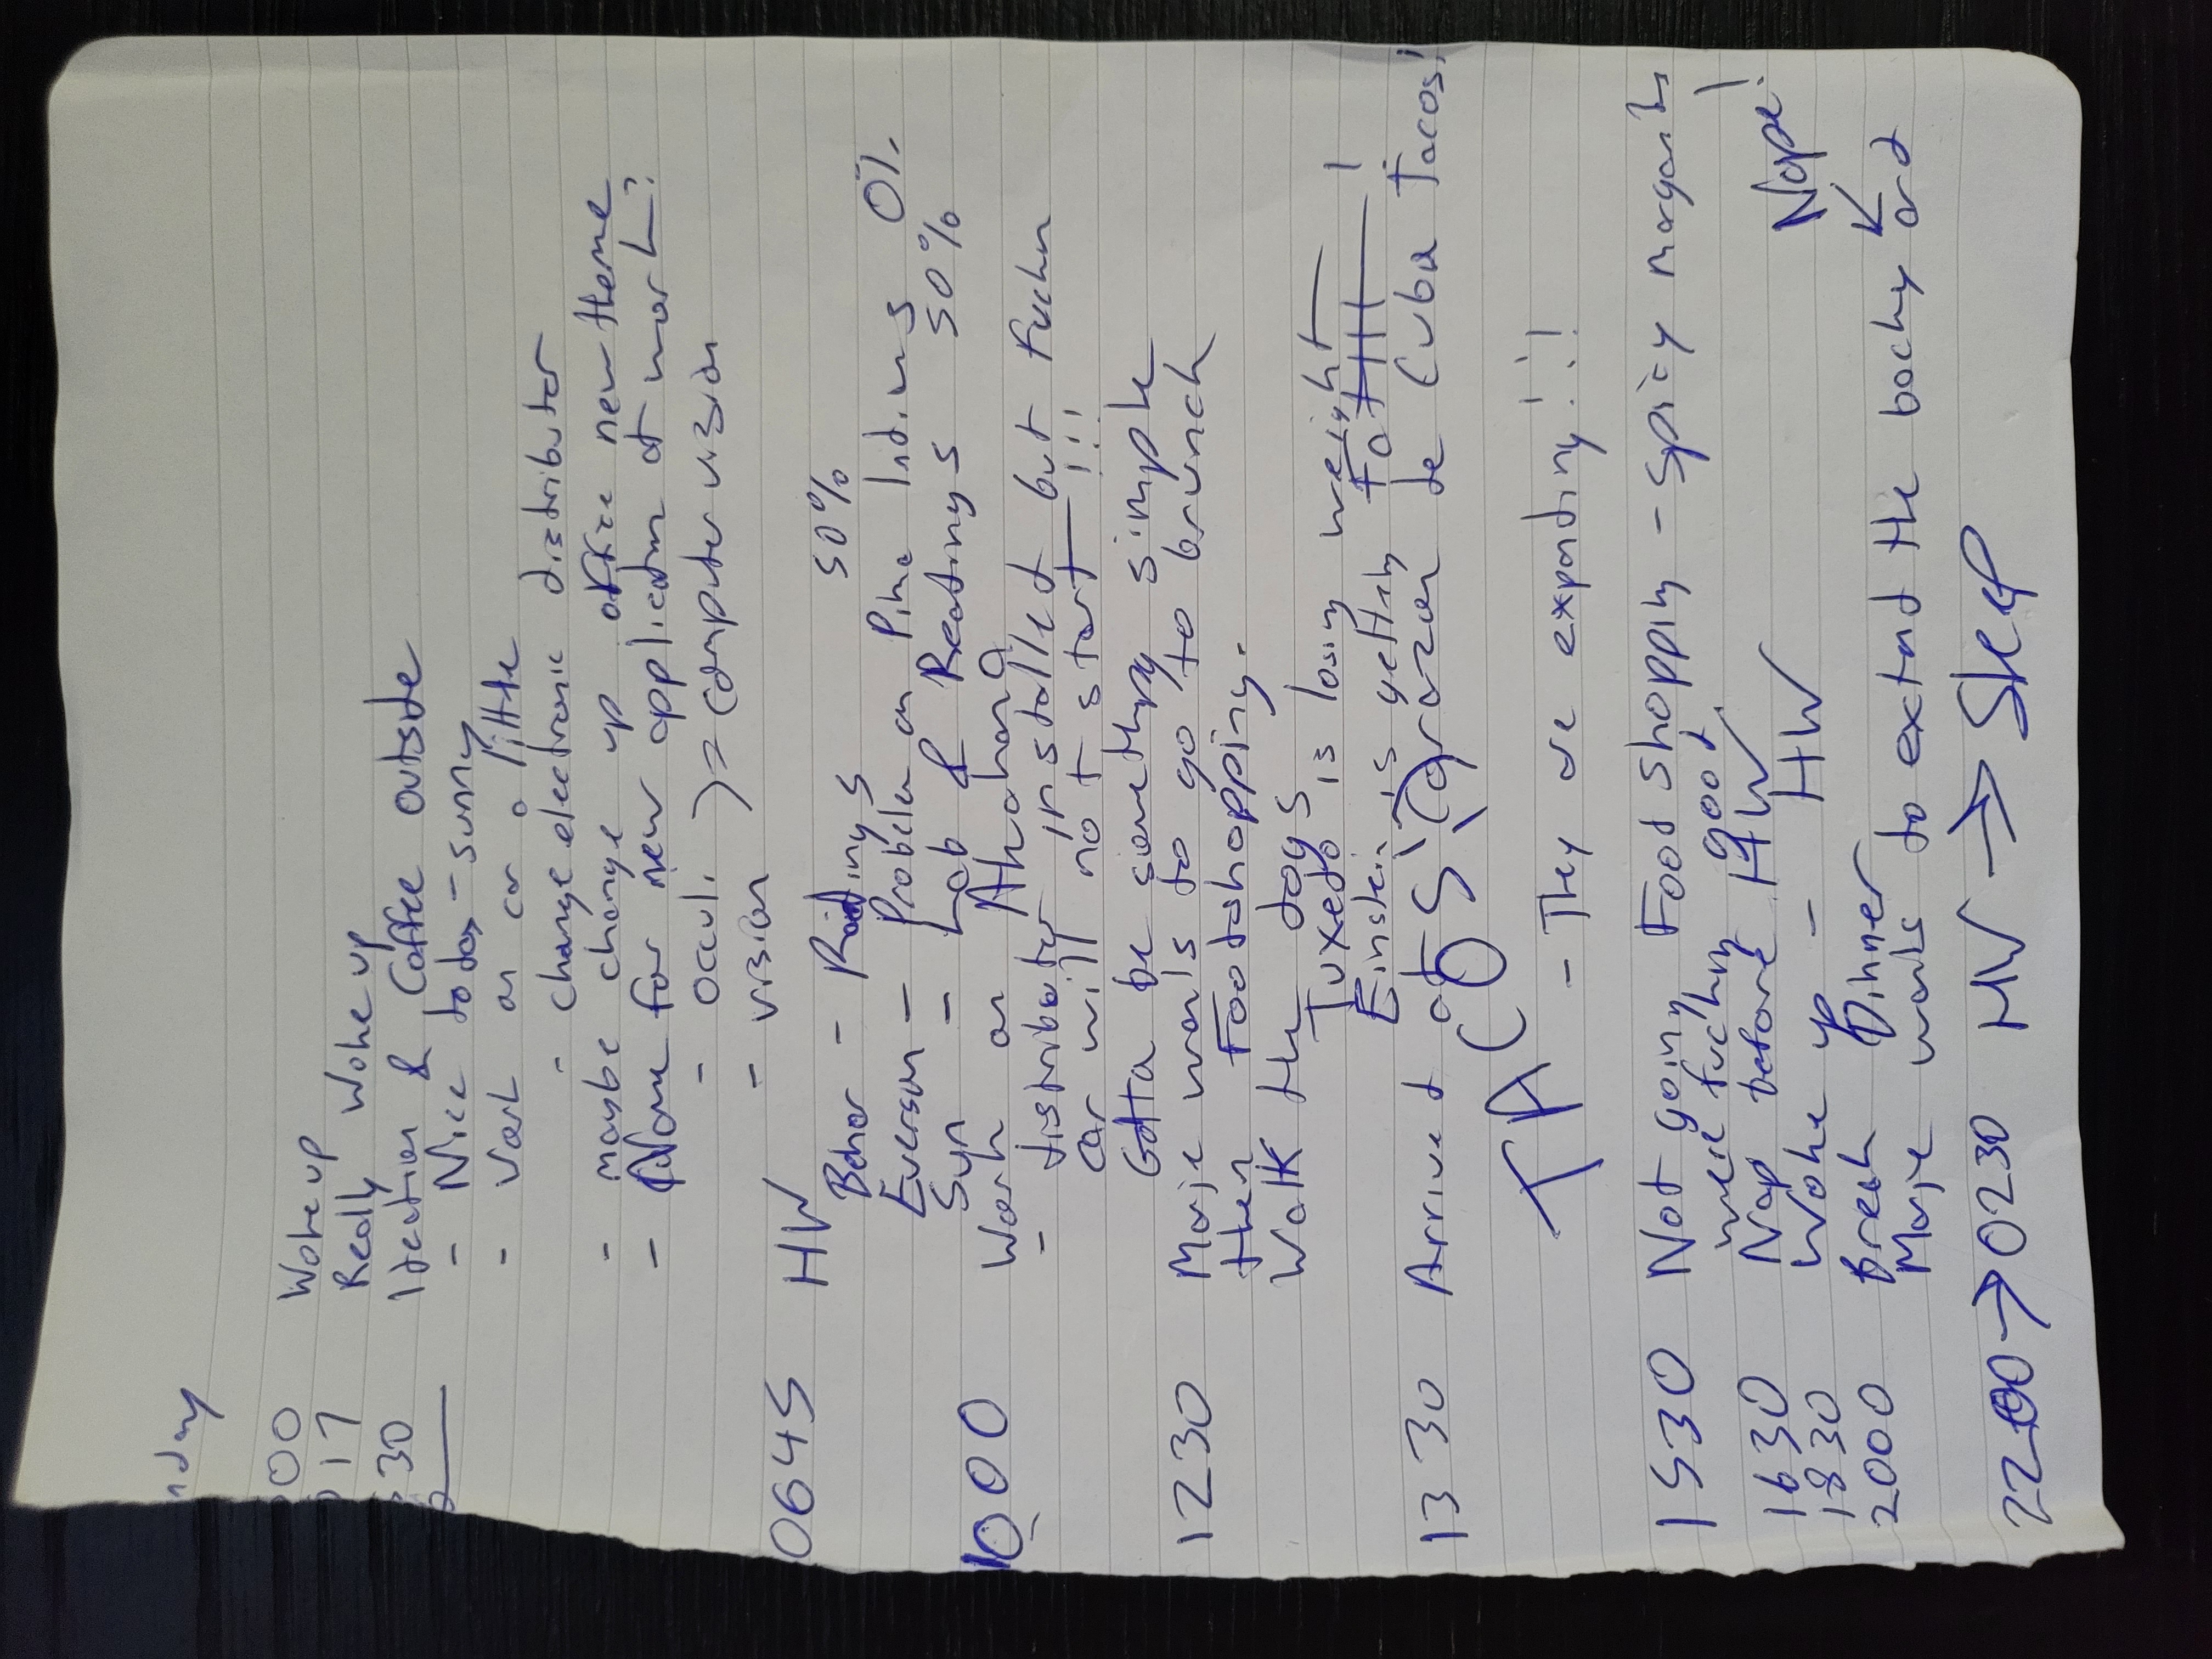 nday
00 Woke up
017 Really Woke up
30 Ideation & Coffee outside
- Nice today - sunny
- Work on car a little
- change electronic distributor
- maybe change up office new theme
- Name for new application at work?
- occuli
- vision } = computer vision
0645 HW
Behar - Readings 50%
Everson - Probelem on Pima Indians 0%
Syn - Lab & Readings 50%
1000 Work on
- distributor installed but fuckn
car will not start !!!
Gotta be something simple
1230 Marje wants to go to brunch
then Foodshopping.
Walk the dogs
Tuxedo is losing weight
Einstein is getting Fatttt!
1330 Arrived at Corazon de Cuba Tacos!
TACOS!
- They are expanding!!!
1530 Not going Food shopping - spicy margaritas
were fuckin good.
1630 Nap before HW
1830 Woke up - HW
Nope!
2000 Break Dinner
Marje wants to extend the backyard
2200 → 0230 HW → Sleep